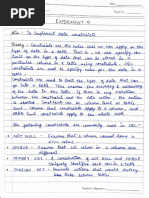 Date
Expt. No.
Page No.
EXPERIMENT 4
Aim : To implement data constraints
Theory : Constraints are the rules that we can apply on the
type of data in a table. That is, we can specify the
limit on the type of data that can be stored in a
particular column in a table using constraints.
Constraints are used to limit the type of data that
can go into a table. This ensures the accuracy and
reliability of the data in the table. If there is any
violation between the constraint and the data
action, the action is aborted. Constraints can be
column level or table level. Column level constraints
apply to a column, and table level constraints apply
to the whole table.
The following constraints are commonly used in SQL :
NOT NULL - Ensures that a column cannot have a
NULL value
UNIQUE - Ensures that all values in a column
are different
PRIMARY KEY - A combination of NOT NULL and UNIQUE
Uniquely identifies each row in a table
FOREIGN KEY - Prevents actions that would destroy
links between tables
Teacher's Signature